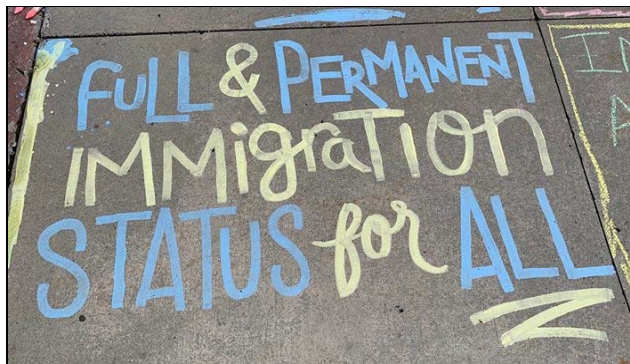 FULL & PERMANENT
IMMIGRATION
STATUS for ALL